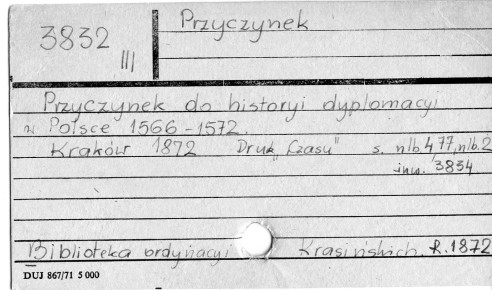 3832
III
Przyczynek
Przyczynek do historyi dyplomacyi
w Polsce 1566-1572.
Kraków 1872 Druk „Czasu" s. nlb 4, 77, nlb. 2
inw. 3834
Biblioteka ordynacyi Krasińskich. R. 1872
DUJ 867/71 5 000